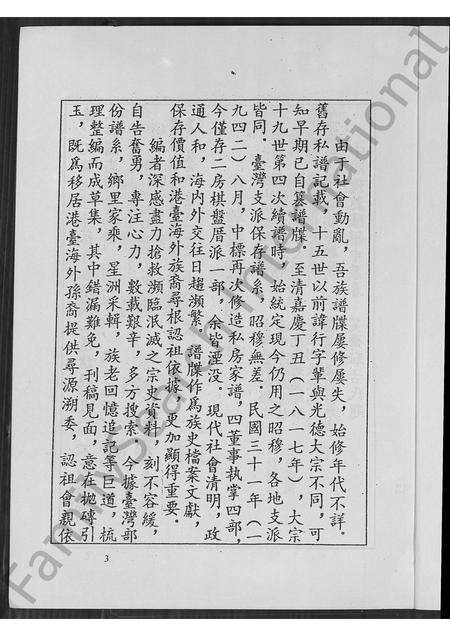 由于社會動亂，吾族譜牒屢修屢失，始修年代不詳。
舊存私譜記載，十五世以前諱行字輩與光德大宗不同，可
知早期已自篡譜牒。至清嘉慶丁丑（一八一七年），大宗
十九世第四次續譜時，始統定現今仍用之昭穆，各地支派
皆同．臺灣支派保存譜系，昭穆無差．民國三十一年（一
九四二）八月，中標再次修造私房家譜，四董事執掌四部，
今僅存二房棋盤厝派一部，余皆湮没。現代社會清明，政
通人和，海内外交往日趨頻繁。譜牒作爲族史檔案文獻，
保存價值和港臺海外族裔尋根認祖依據，更加顯得重要．
編者深感盡力搶救瀕臨泯滅之宗史資料，刻不容緩，
自告奮勇，專注心力，數載艱辛，多方搜索，今據臺灣部
份譜系，鄉里家乘，星洲采輯，族老回憶追記等巨道，梳
理整編而成草集，其中錯漏難免，刊稿見面，意在拋磚引
玉，既爲移居港臺海外孫裔提供尋源溯委，認祖會親依
3
FamilySearch International